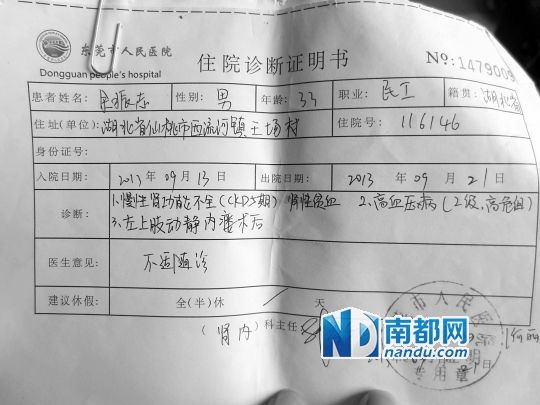 东莞市人民医院
Dongguan people's hospital
住院诊断证明书
No:1479009
患者姓名: 振志 性别: 男 年龄: 33 职业: 民工 籍贯: 湖北省
住址(单位): 湖北省仙桃市西流河镇王场村 住院号: 116146
身份证号:
入院日期: 2013 年 09 月 13 日 出院日期: 2013 年 09 月 21 日
诊断: 1.慢性肾功能不全(CKD5期) 肾性贫血 2.高血压病(2级,高危组)
3.左上肢动静内瘘术后
医生意见: 不适随诊
建议休假: 全(半)休 天
(肾内)科主任:
市人民
证明
专用章
日
ND 南都网
nandu.com